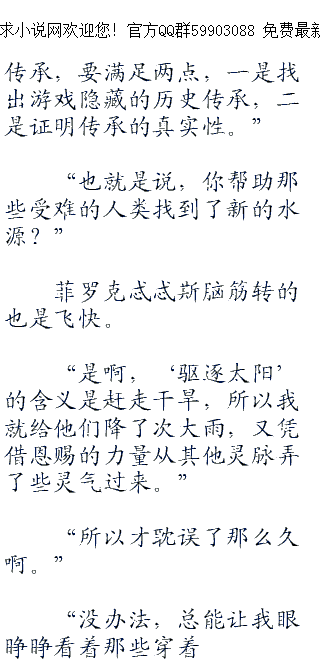 求小说网欢迎您！官方QQ群59903088 免费最新
传承，要满足两点，一是找
出游戏隐藏的历史传承，二
是证明传承的真实性。”
“也就是说，你帮助那
些受难的人类找到了新的水
源？”
菲罗克忒忒斯脑筋转的
也是飞快。
“是啊，‘驱逐太阳’
的含义是赶走干旱，所以我
就给他们降了次大雨，又凭
借恩赐的力量从其他灵脉弄
了些灵气过来。”
“所以才耽误了那么久
啊。”
“没办法，总能让我眼
睁睁看着那些穿着